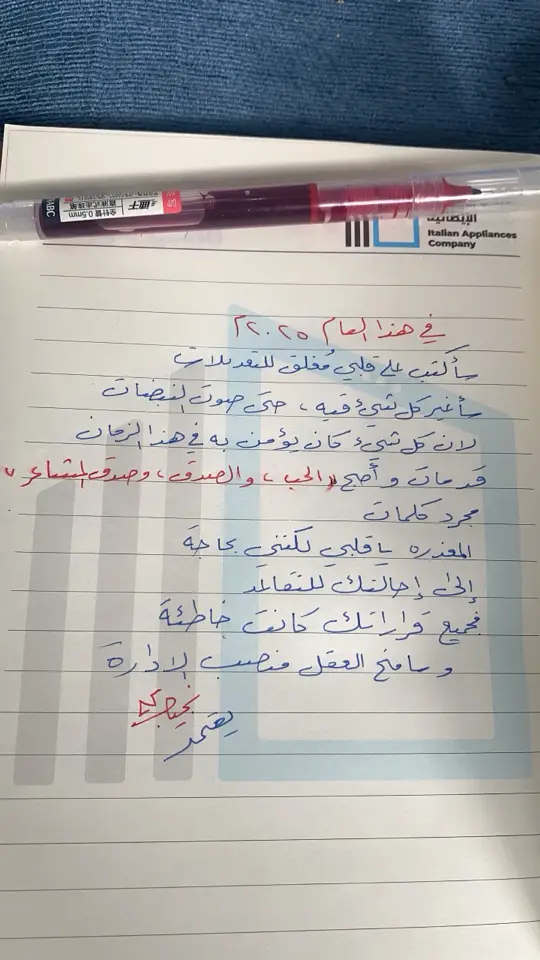 ABC
全针管 0.5mm
直液式走珠笔
الإيطالية
Italian Appliances
Company
في هذا العام ٢٠٢٥م
سأكتب على قلبي مُغلق للتعديلات
سأغير كل شيء فيه، حتى صوت النبضات
لان كل شيء كان يؤمن به في هذا الزمان
قد مات وأصبح "الحب، والصدق، وصدق المشاعر"
مجرد كلمات
المعذره يا قلبي لكنني بحاجة
إلى إحالتك للتقاعد
فجميع قراراتك كانت خاطئة
وسامنح العقل منصب الإدارة
يعتمد